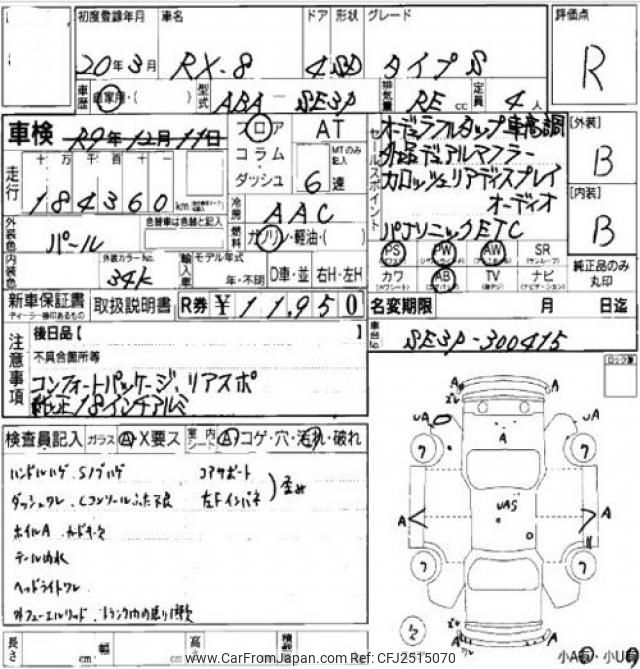 初度登録年月 車名 ドア 形状 グレード 評価点
20年3月 RX-8 4 SD タイプS R
車歴 自家用・( ) 型式 ABA-SE3P 排気量 RE cc 定員 4人
車検 R9年12月11日 フロア AT
コラム・ダッシュ MTのみ記入 6速
走行 十万千百十 184360 km
冷房 AAC
燃料 ガソリン・軽油・( )
セールスポイント
オーデュラフルタップ車高調
外品デュアルマフラー
カロッツェリアディスプレイ
オーディオ
パナソニックETC
[外装] B
[内装] B
外装色 パール 色替車は色替と記入
内装色 外装カラーNo. 34K
輸入車 モデル年式 年・不明 D車・並 右H・左H
PS PW AW SR (サンルーフ)
カワ AB TV ナビ
純正品のみ丸印
新車保証書 ディーラー捺印あるもの 取扱説明書 R券 ¥11,950
名変期限 月 日迄
車台No. SE3P-300415
注意事項
後日品【 】
不具合箇所等
コンフォートパッケージ、リアスポ
純正18インチアルミ
検査員記入 ガラス A・X要ス 室内シート A・コゲ・穴・汚れ・破れ
ハンドルハゲ、Sノブハゲ コアサポート
ダッシュワレ、Cコンソールふた不良 左Fインパネ
ホイルA
テール内水
ヘッドライトワレ
長さ cm 幅 cm 高さ cm 積載
A A
uA A uA
A uAS A
小A 小U
www.CarFromJapan.com Ref:CFJ2515070